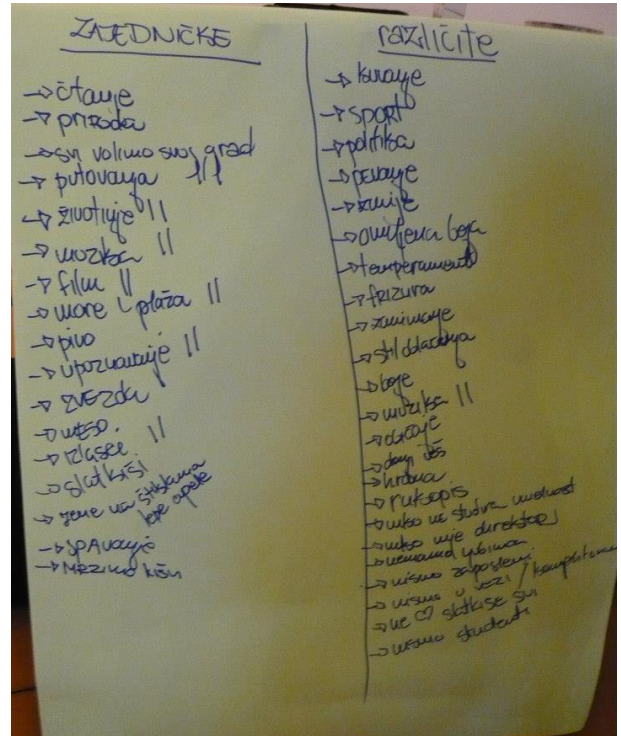 ZAJEDNIČKE
→ čitanje
→ priroda
→ svi volimo svoj grad
→ putovanja III
→ životinje II
→ muzika II
→ film II
→ more i plaža II
→ pivo
→ upoznavanje II
→ zvezda
→ meso.
→ izlasci II
→ slatkiši
→ žene na štiklama
lepe cipele
→ SPAvanje
→ MRZIMO kišu
različite
→ kuvanje
→ SPORT
→ politika
→ pevanje
→ zmije
→ omiljena boja
→ temperament
→ frizura
→ zanimanje
→ stil oblačenja
→ boje
→ muzika II
→ donji veš
→ hrana
→ rukopis
→ niko ne studira umetnost
→ niko nije direktor
→ nismo zaposleni
→ nismo u vezi /
→ ne ♡ slatkiše svi
→ nismo studenti